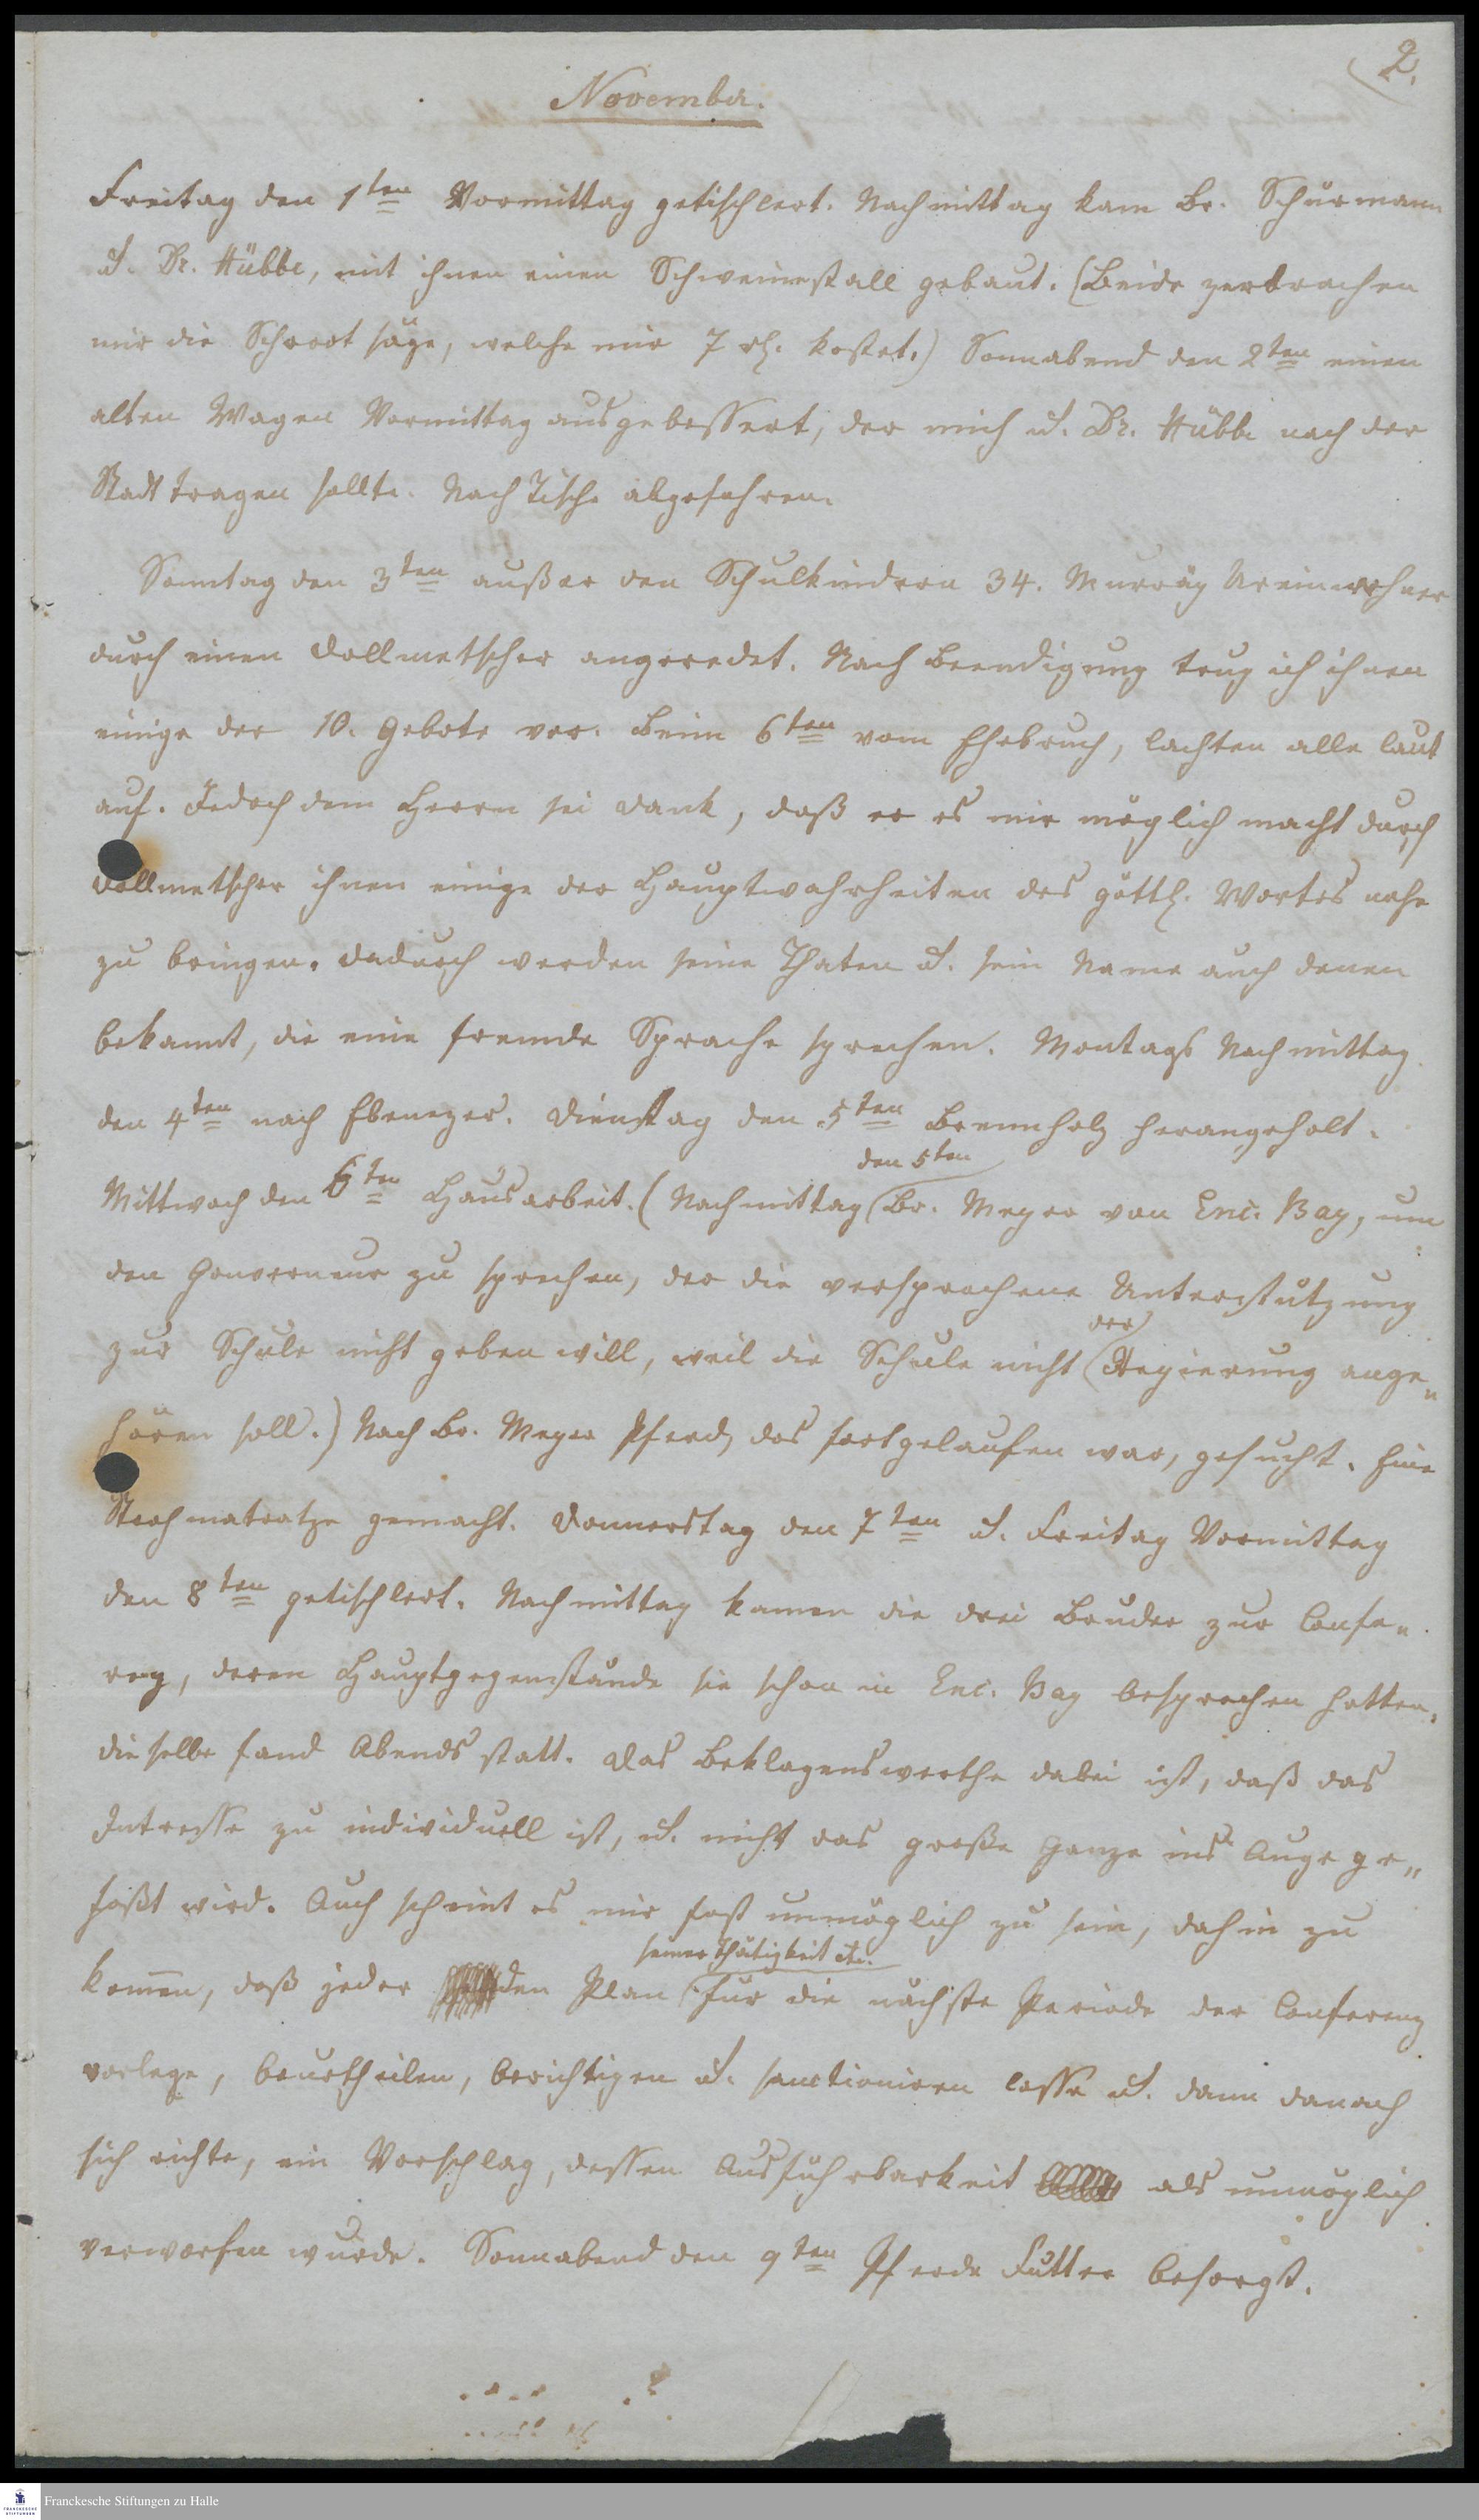 2.
November.
Freitag den 1ten Vormittag getischlert. Nachmittag kam Br. Schürmann
u. Dr. Hübbe, mit ihnen einen Schweinestall gebaut. (Beide zerbrachen
mir die Schrootsäge, welche mir 7 rh. kostet.) Sonnabend den 2ten einen
alten Wagen Vormittag ausgebessert, der mich u. Dr. Hübbe nach der
Stadt tragen sollte. Nach Tische abgefahren.
Sonntag den 3ten außer den Schulkindern 34. Murray Ureinwohner
durch einen Dollmetscher angeredet. Nach Beendigung trug ich ihnen
einige der 10. Gebote vor. Beim 6ten vom Ehebruch, lachten alle laut
auf. Jedoch dem Herrn sei Dank, daß er es mir möglich macht durch
Dollmetscher ihnen einige der Hauptwahrheiten des göttl. Wortes nahe
zu bringen. Dadurch werden seine Thaten u. sein Name auch denen
bekannt, die eine fremde Sprache sprechen. Montags Nachmittag
den 4ten nach Ebenezer. Dienstag den 5ten Brennholz herangeholt.
den 5ten
Mittwoch den 6ten Hausarbeit. (Nachmittag Br. Meyer von Enc. Bay, um
den Gouverneur zu sprechen, der die versprochene Unterstützung
der
zur Schule nicht geben will, weil die Schule nicht Regierung ange„
hören soll.) Nach Br. Meyer Pferd, das fortgelaufen war, gesucht. Eine
Strohmatratze gemacht. Donnerstag den 7ten u. Freitag Vormittag
den 8ten getischlert. Nachmittag kamen die drei Brüder zur Confe„
renz, deren Hauptgegenstände sie schon in Enc. Bay besprochen hatten,
dieselbe fand Abends statt. Das Beklagenswerthe dabei ist, daß das
Intresse zu individuell ist, u. nicht das große Ganze ins Auge ge„
faßt wird. Auch scheint es mir fast unmöglich zu sein, dahin zu
seiner Thätigkeit etc.
kommen, daß jeder den Plan für die nächste Periode der Conferenz
vorlege, beurtheilen, berichtigen u. sanctioniren lasse u. dann danach
sich richte, ein Vorschlag, dessen Ausführbarkeit als unmöglich
verworfen wurde. Sonnabend den 9ten Pferde Futter besorgt.
Franckesche Stiftungen zu Halle